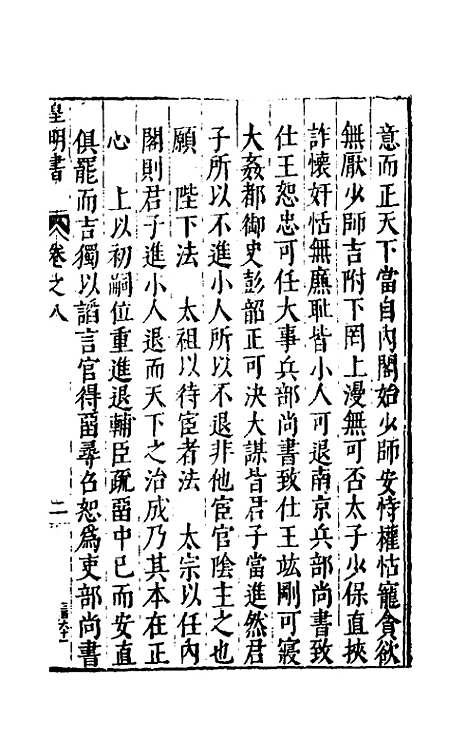 意而正天下當自內閣始少師安恃權怙寵貪欲
無厭少師吉附下罔上漫無可否太子少保直挾
詐懷奸恬無廉耻皆小人可退南京兵部尚書致
仕王恕忠可任大事兵部尚書致仕王竑剛可寢
大姦都御史彭韶正可決大謀皆君子當進然君
子所以不進小人所以不退非他宦官陰主之也
願　陛下法　太祖以待宦者法　太宗以任內
閣則君子進小人退而天下之治成乃其本在正
心　上以初嗣位重進退輔臣疏畱中已而安直
俱罷而吉獨以謟言官得畱尋召恕爲吏部尚書
皇明書　卷之八　二